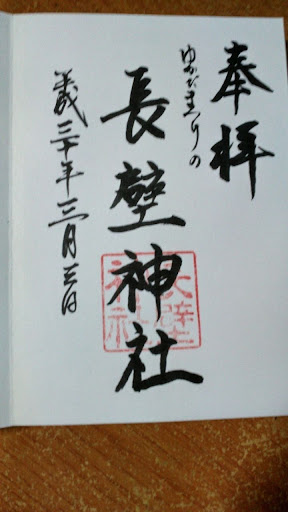 奉拝
ゆかたまつりの
長壁神社
平成三十年三月三日
長壁神社